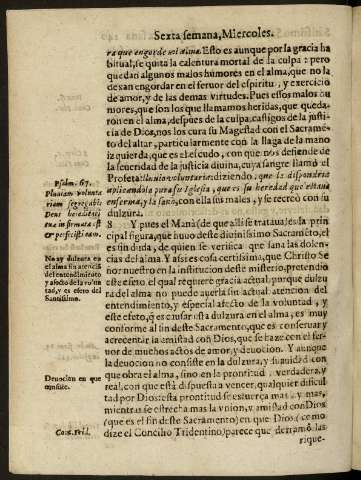 Sexta semana, Miercoles.
ra que engorde mi alma. Esto es aunque por la gracia ha
bitual, se quita la calentura mortal de la culpa: pero
quedan algunos malos humores en el alma, que no la
dexan engordar en el feruor del espiritu, y exercicio
de amor, y de las demas virtudes. Pues estos malos hu
mores, que son los que llamamos heridas, que queda-
ron en el alma, despues de la culpa, castigos de la justi-
cia de Dios, nos los cura su Magestad con el Sacrame-
to del altar, particularmente con la llaga de la mano
izquierda, que es el escudo, con que nos defiende de
la seueridad de la justicia diuina, cuya sangre llamò el
Profeta: lluuia voluntaria: diziendo, que la dispondria
aplicandola para su Iglesia, que es su heredad que estaua
enferma, y la sanò, con ella sus males, y se recreò con su
dulzura.
8 Y pues el Manà (de que alli se trataua) es la prin
cipal figura, que huuo deste diuinissimo Sacrameto, el
es sin duda, de quien se verifica que sana las dolen-
cias del alma. Y assi es cosa certissima, que Christo Se
ñor nuestro en la institucion deste misterio, pretendio
este efeto, el qual requiere gracia actual, porque dulzu
ra del alma no puede auerla sin actual atencion del
entendimiento, y especial afecto de la voluntad, y
este efeto, q̃ es causar esta dulzura en el alma, es muy
conforme al fin deste Sacramento, que es conseruar y
acrecentar la amistad con Dios, que se haze con el fer-
uor de muchos actos de amor, y deuocion. Y aunque
la deuocion no consiste en la dulzura, y suauidad con
que obra el alma, sino en la prontitud, verdadera, y
real, con que està dispuesta a vencer, qualquier dificul
tad por Dios: esta prontitud se esfuerça mas, y mas,
mientras se estrecha mas la vnion, y amistad con Dios
(que es el fin deste Sacramento) en que Dios (como
dize el Concilio Tridentino) parece que derramò las
rique-
Psalm. 67.
Pluuiam volunta
riam segregabis
Deus heredita-
tuæ infirmata est
tu perfecisti eam.
No ay dulzura en
el alma sin atenciõ
del entendimiento
y afecto de la volun
tad, y es efeto del
Santissimo.
Deuocion en que
consiste.
Conc. trid.